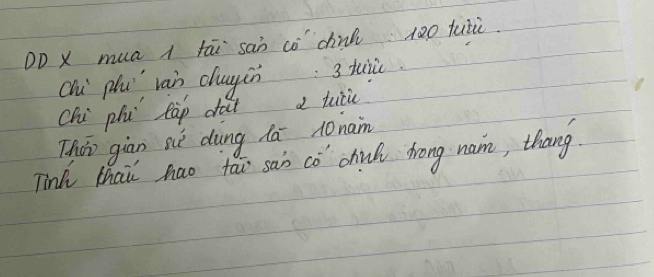 DD X mua 1 tài sản cố định : 120 triệu.
Chi phí vận chuyển : 3 triệu.
Chi phí lắp đặt 2 triệu
Thời gian sử dụng là 10 năm
Tính khấu hao tài sản cố định trong năm, tháng.